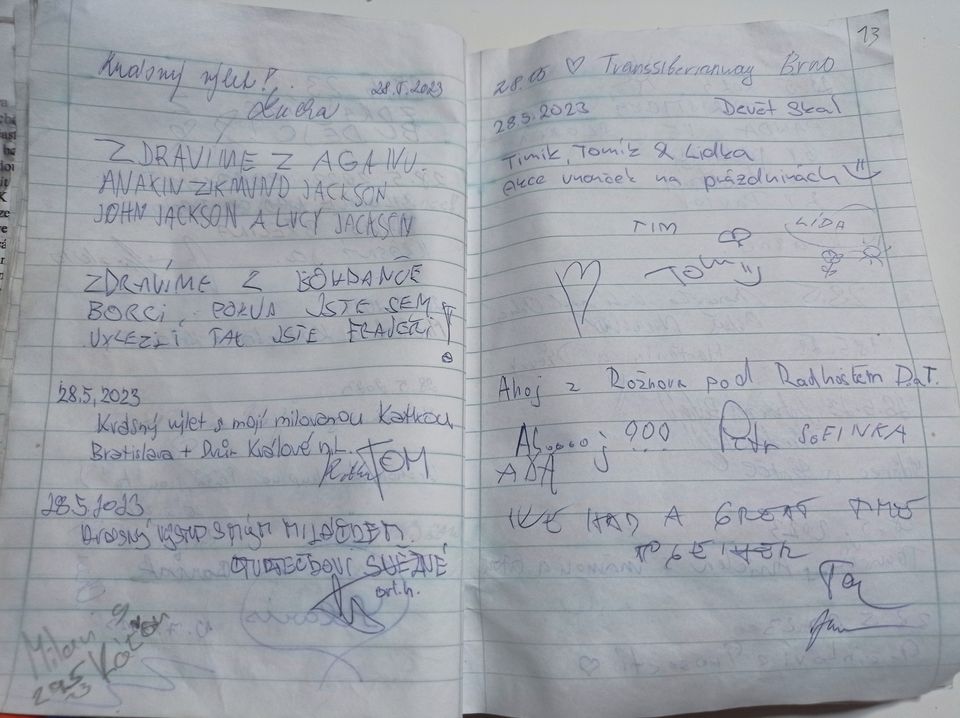 Krásný výlet!
28.5.2023
ZDRAVIME Z
ANAKIN ZIKMUND JACKSON
JOHN JACKSON A LUCY JACKSON
ZDRAVÍME Z
BORCI, POKUD JSTE SEM
VYLEZLI TAK JSTE FRAJEŘI
28.5.2023
Krásný výlet s mojí milovanou Katkou
Bratislava + Dvůr Králové n.L.
TOM
28.5.2023
Krásný výstup s mým MILÁČKEM.
SNĚŽNÉ
Milan
29.5
23
13
28.05 ♡ Transsiberianway Brno
28.5.2023 Devět Skal
Timik, Tomík & Lidka
Akce vraneček na prázdninách
TIM
LÍDA
Ahoj z Rožnova pod Radhoštěm D.a.T.
Ahooooj 000 Petr
ADA
WE HAD A GREAT TIME
TOGETHER